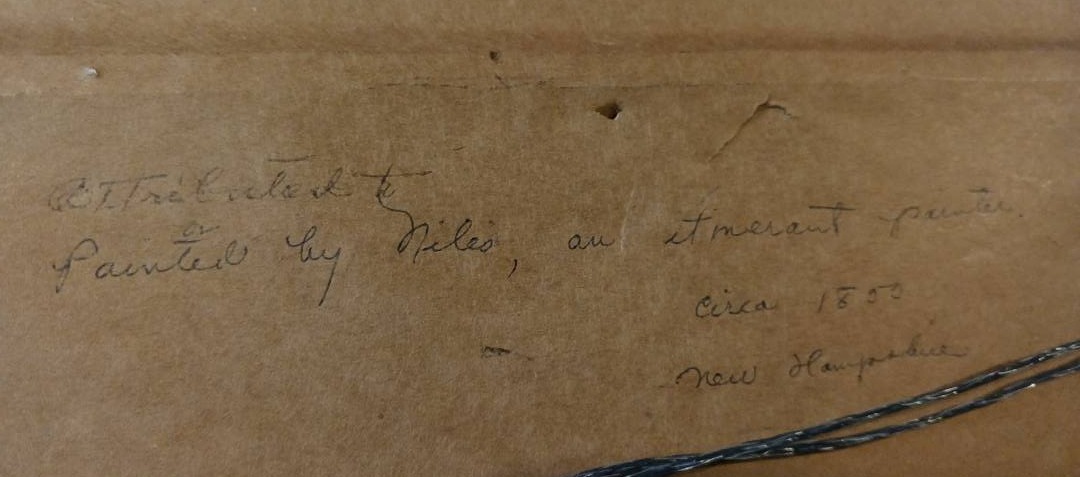 Attributed to
or
Painted by Niles, an itinerant painter.
circa 1800
New Hampshire